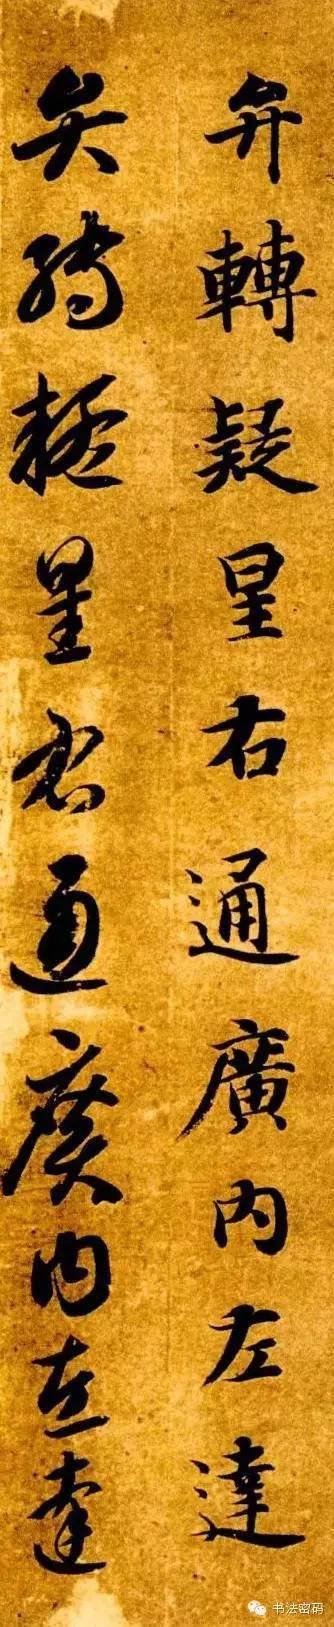 弁轉疑星右通廣內左達
弁轉疑星右通廣內左達
书法密码